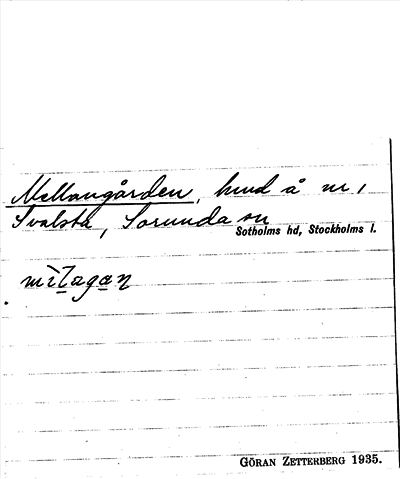 Mellangården, hmd å nr 1
Svalsta, Sorunda sn
Sotholms hd, Stockholms l.
GÖRAN ZETTERBERG 1935.